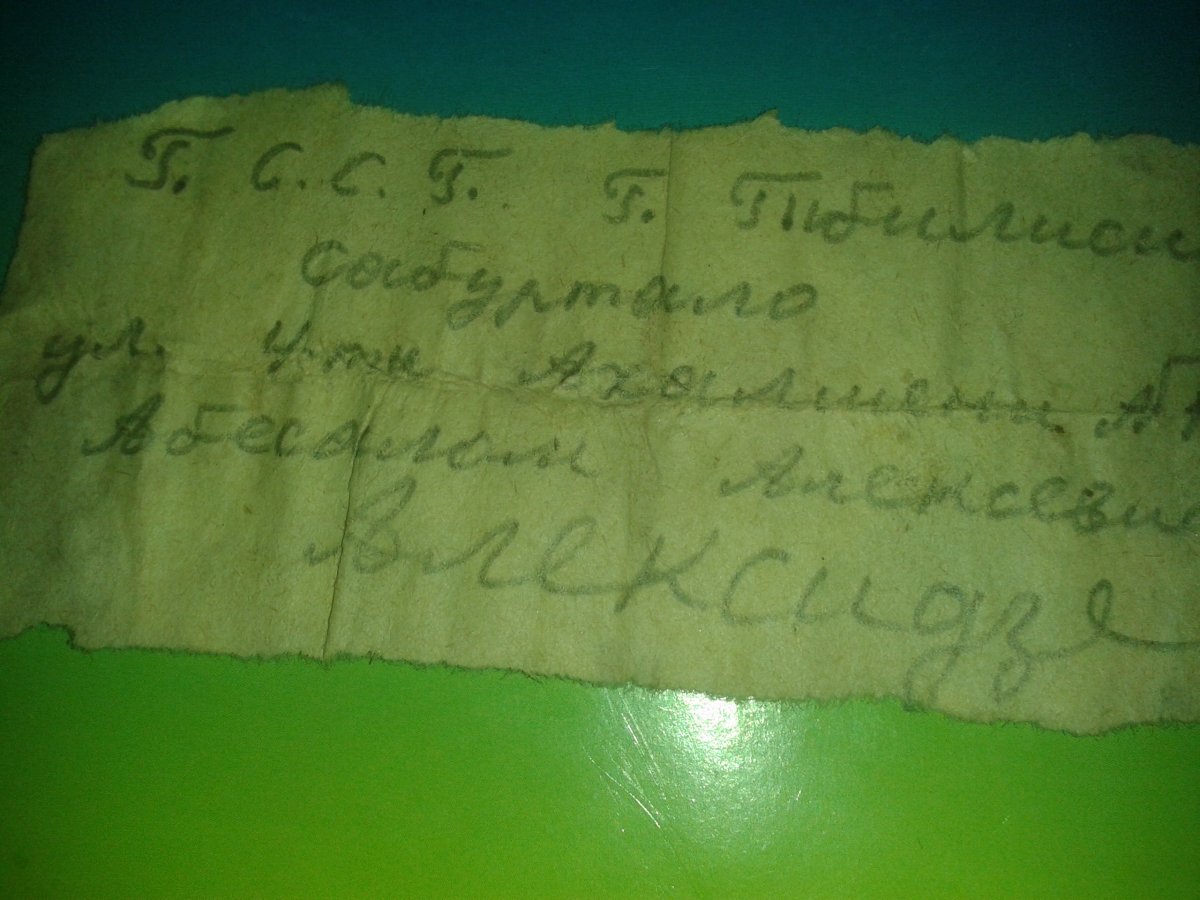 Г. С. С. Г. Г. Тбилиси
Сабуртало
ул. Ахалшени
Абесалом Алексевич
Алексидзе